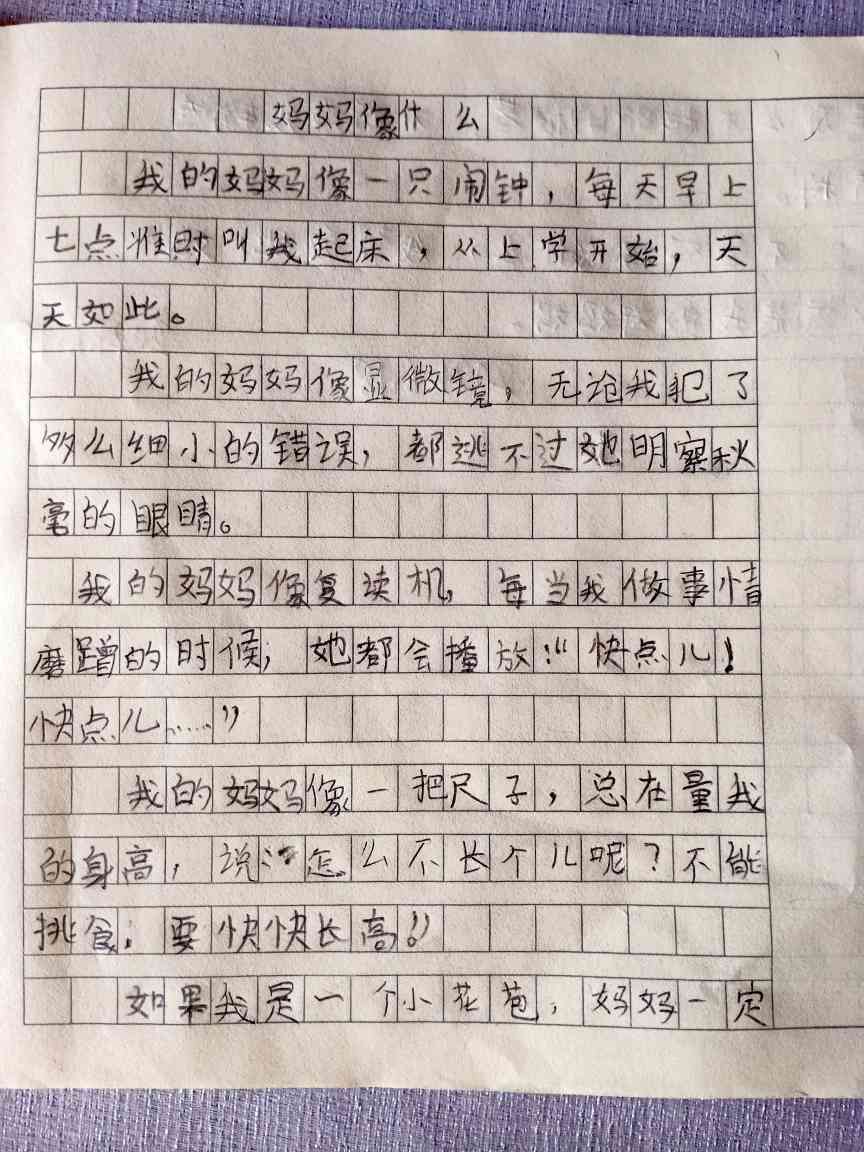 妈妈像什么
我的妈妈像一只闹钟，每天早上
七点准时叫我起床，从上学开始，天
天如此。
我的妈妈像显微镜，无论我犯了
多么细小的错误，都逃不过她明察秋
毫的眼睛。
我的妈妈像复读机，每当我做事情
磨蹭的时候，她都会播放：“快点儿！
快点儿……”
我的妈妈像一把尺子，总在量我
的身高，说：“怎么不长个儿呢？不能
挑食，要快快长高！”
如果我是一个小花苞，妈妈一定